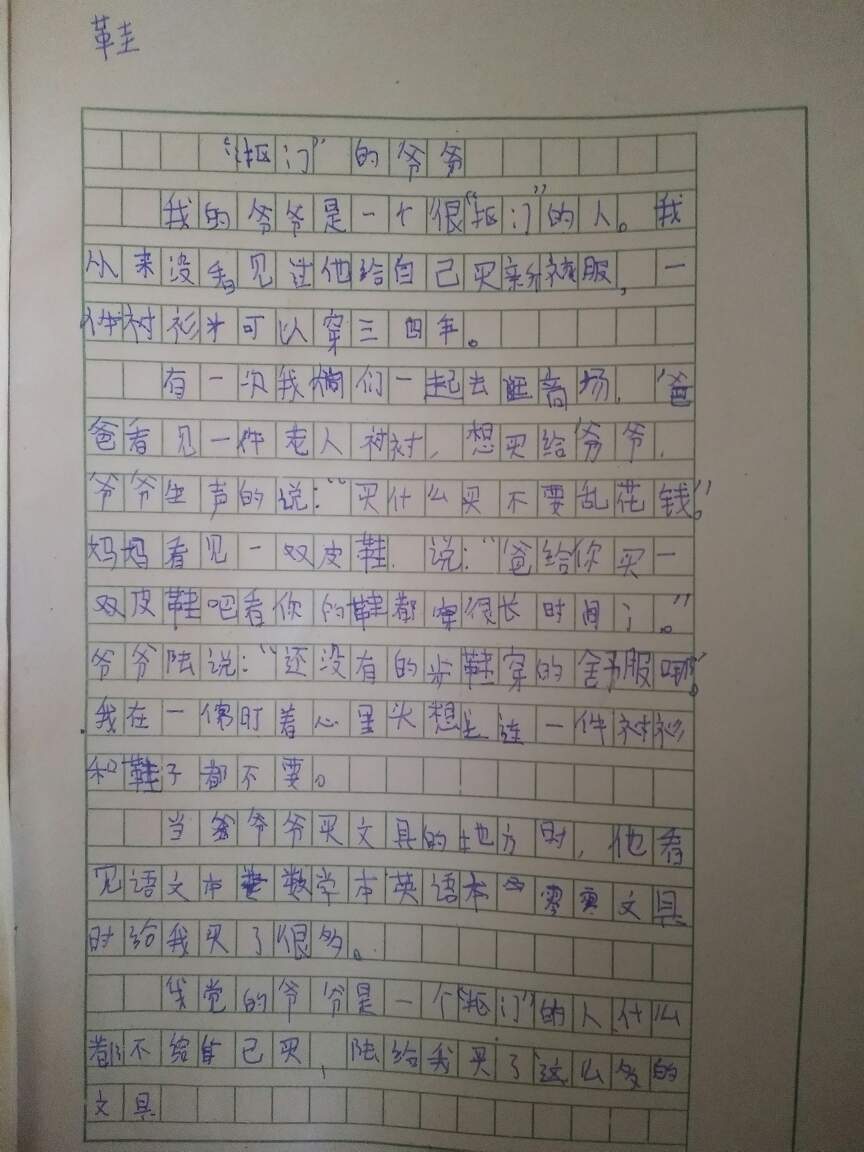 鞋
“抠门”的爷爷
我的爷爷是一个很“抠门”的人。我
从来没看见过他给自己买新衣服,一
件衬衫可以穿三四年。
有一次我们一起去商场,爸
爸看见一件老人衬衬,想买给爷爷,
爷爷生声的说:“买什么买不要乱花钱。”
妈妈看见一双皮鞋,说:“爸给你买一
双皮鞋吧看你的鞋都穿很长时间了。”
爷爷陆说:“还没有的步鞋穿的舍服呢。”
我在一傍时着心里头想连一件衬衫
和鞋子都不要。
当爷爷买文具的地方时,他看
见语文本数学本英语本文具
时给我买了很多。
我觉的爷爷是一个“抠门”的人什么
都不给自己买,陆给我买了这么多的
文具